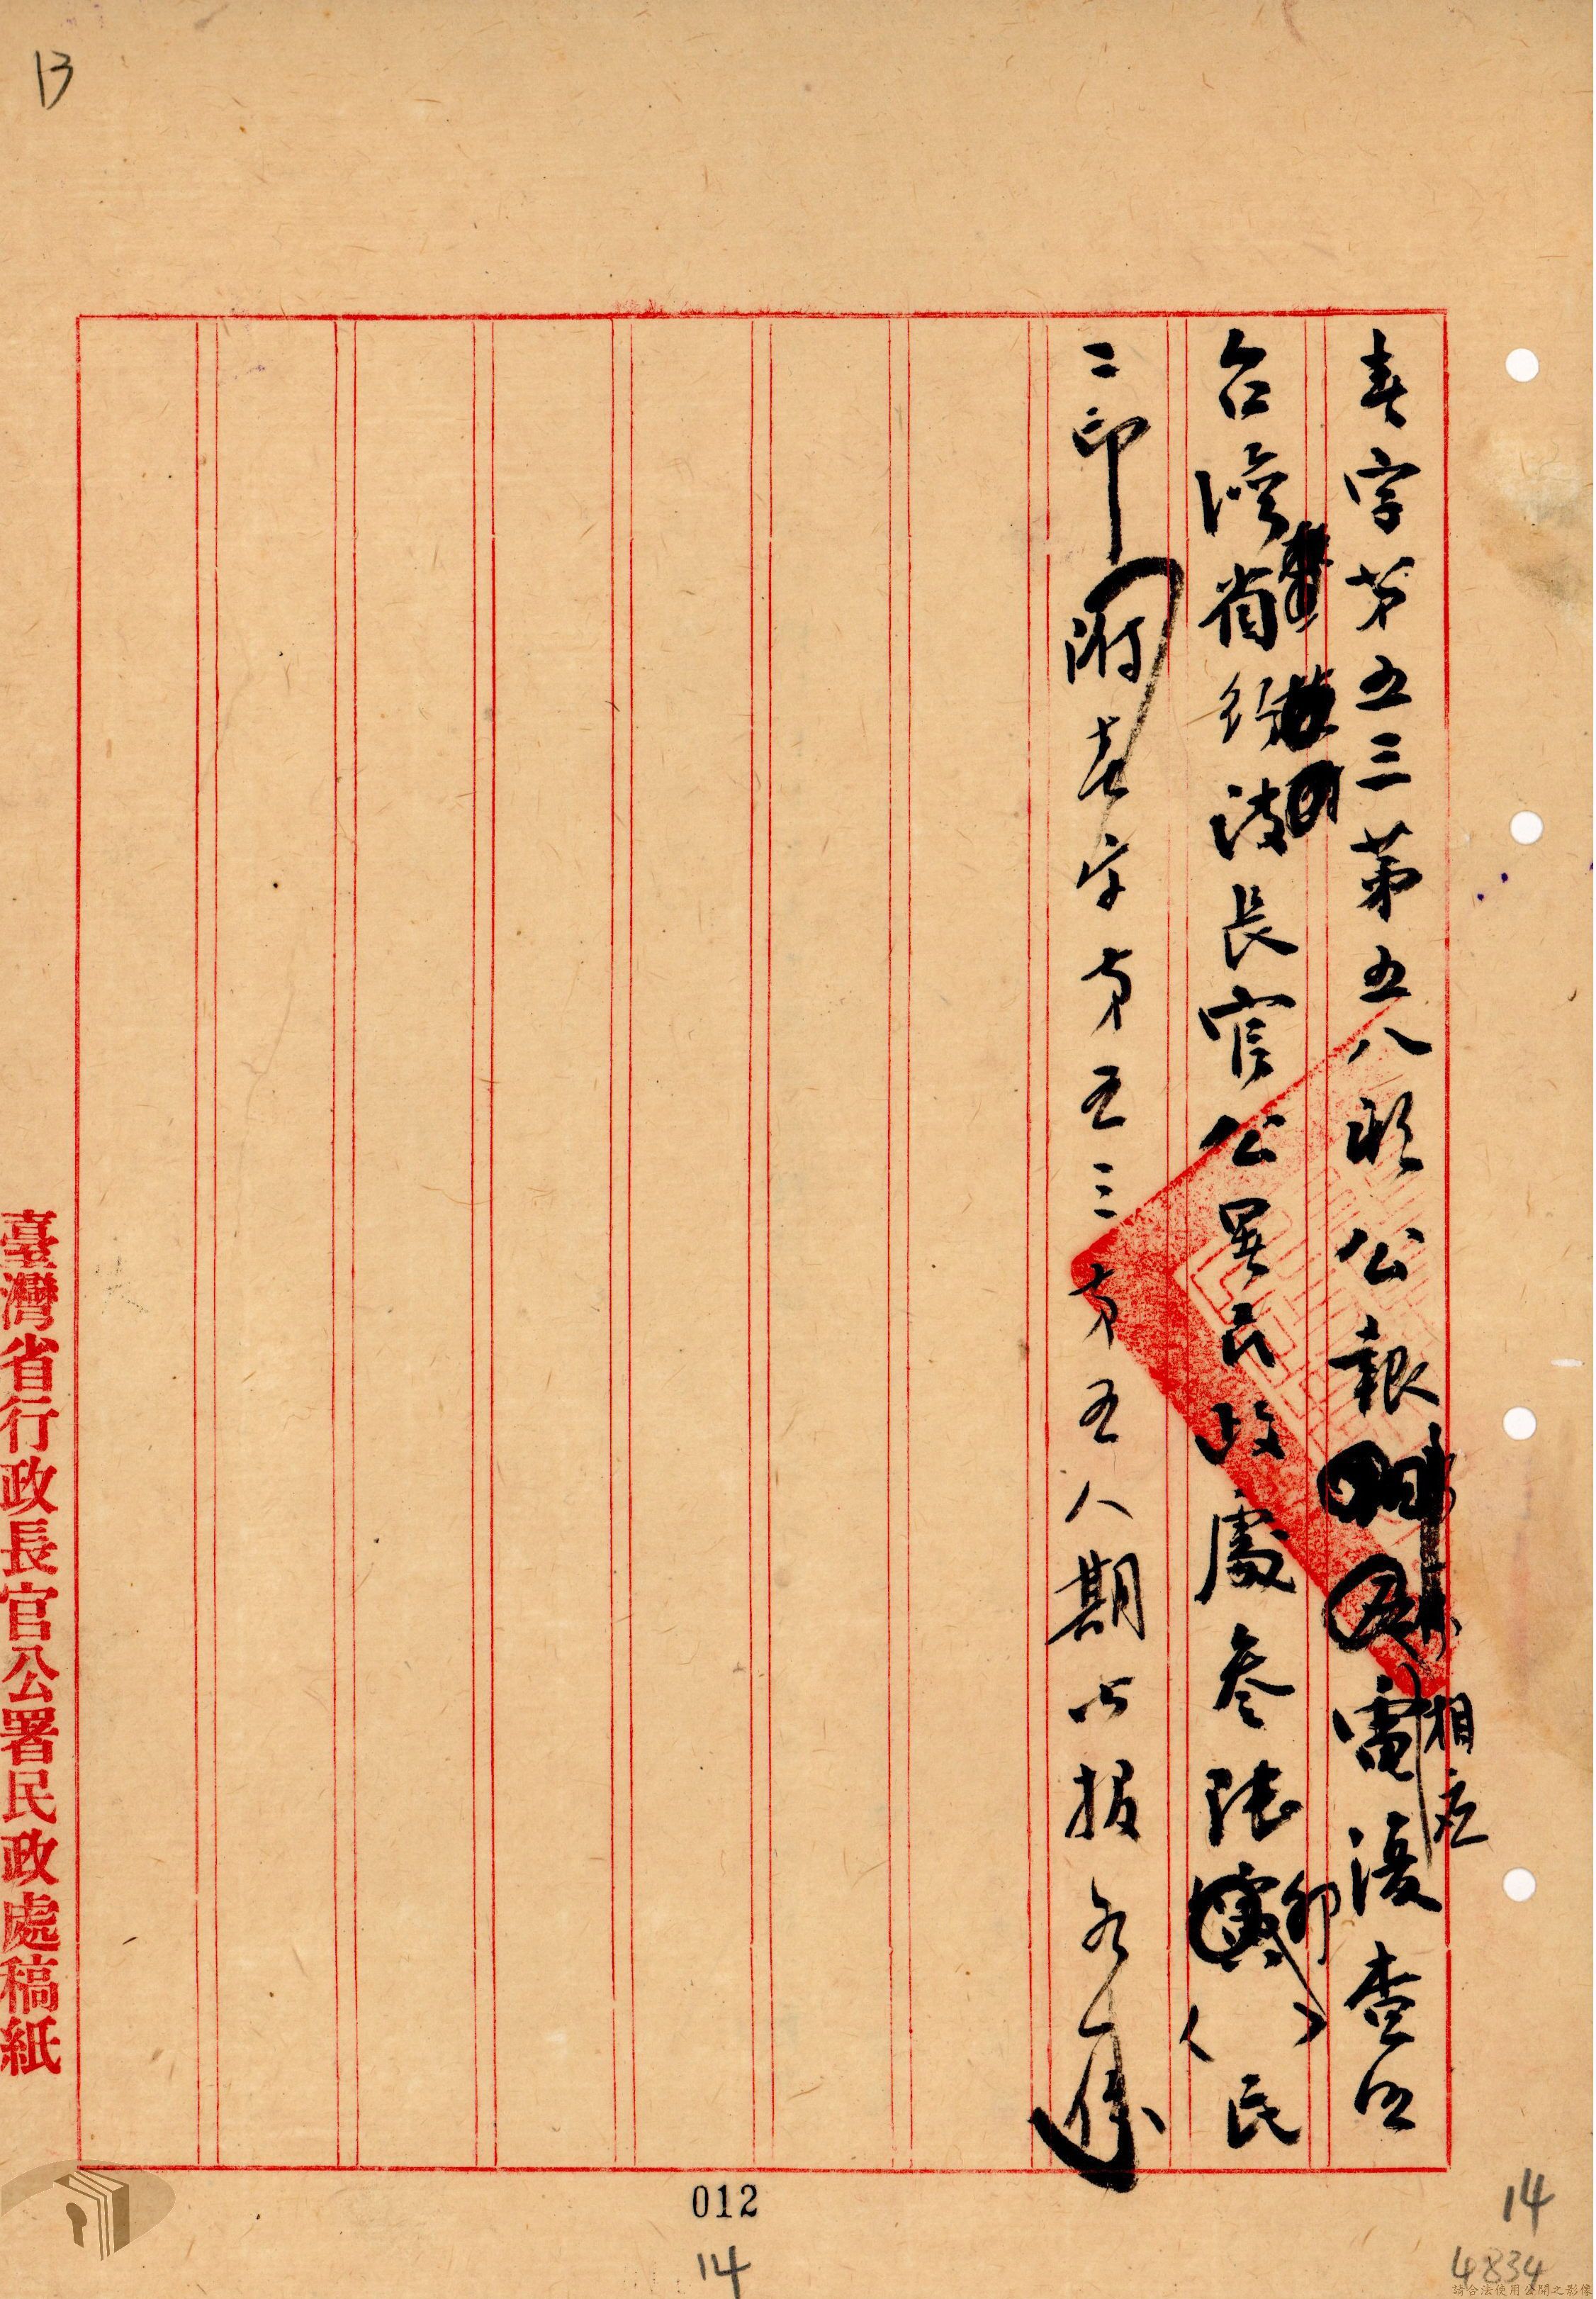 13
春字第五三第五八期公報
相應
電復查照
台灣省行政長官公署民政處叁張
卯
民
二印
附春字第五三第五八期公報各一份
臺灣省行政長官公署民政處稿紙
012
14
14
4834
請合法使用公開之影像